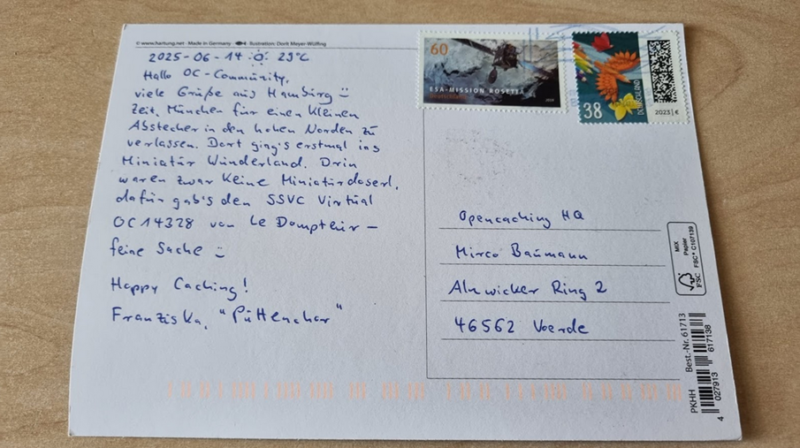 © www.hartung.net · Made in Germany Illustration: Dorit Meyer-Wülfing
2025-06-14 29°C
Hallo OC-Community,
viele Grüße aus Hamburg
Zeit, München für einen kleinen
Abstecher in den hohen Norden zu
verlassen. Dort ging's erstmal ins
Miniatur Wunderland. Drin
waren zwar keine Miniaturdoserl,
dafür gab's den SSVC Virtual
OC14328 von Le Dompteur –
feine Sache
Happy Caching!
Franziska,
60
ESA-MISSION ROSETTA
38
DEUTSCHLAND
2023 | €
Opencaching HQ
Mirco Baumann
Alnwicker Ring 2
46562 Voerde
MIX
Papier
FSC® C107139
FSC
PKHH Best.-Nr. 61713
4 027913 617138